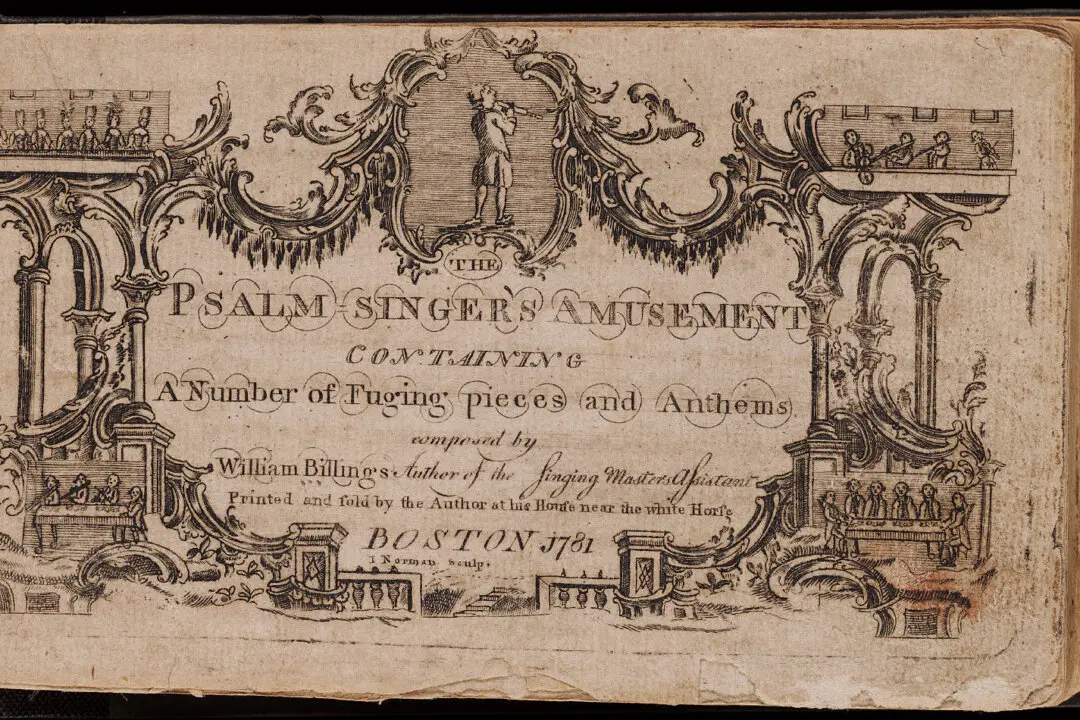 THE
PSALM-SINGER'S AMUSEMENT
CONTAINING
A Number of Fuging pieces and Anthems
composed by
William Billings Author of the Singing Masters Assistant
Printed and sold by the Author at his House near the white Horse
BOSTON 1781
I Norman Sculp.